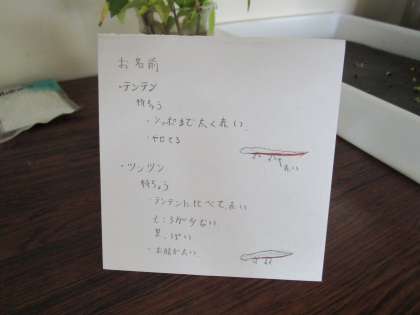 お名前
・テンテン
特ちょう
・シッポまで太く赤い。
・やせてる
赤い
・ツンツン
特ちょう
・テンテンに比べて、赤い
ところが少ない
黒っぽい
・お腹が太い